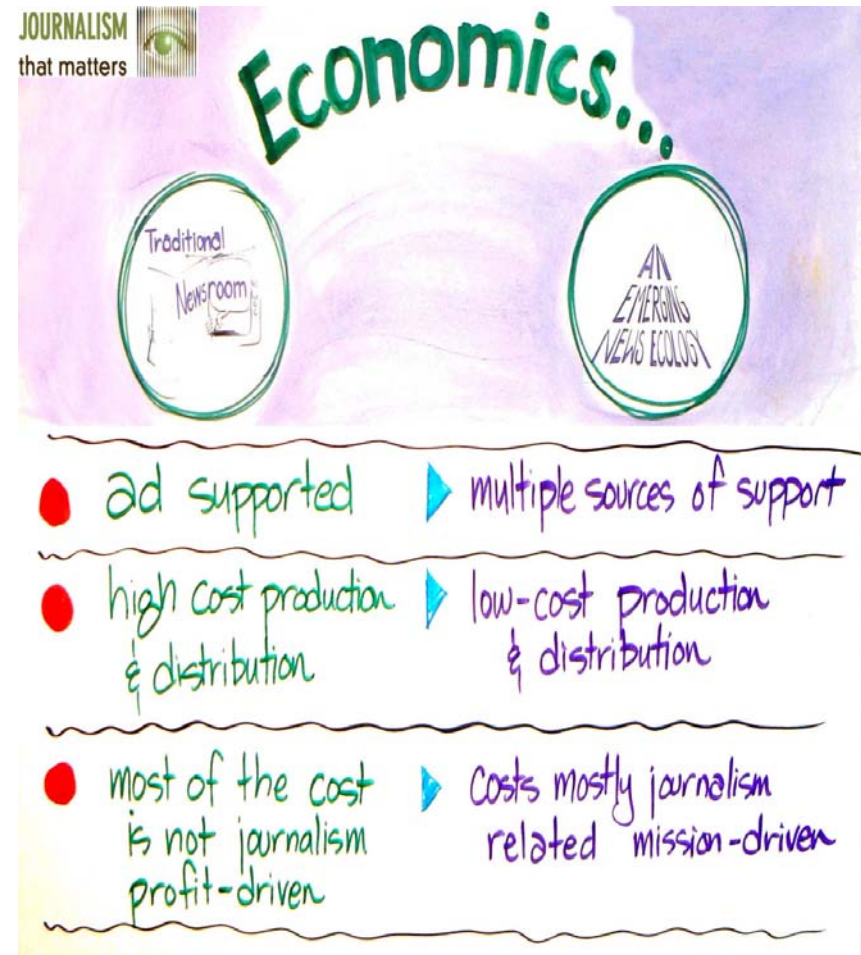 JOURNALISM
that matters
Economics...
Traditional
Newsroom
AN
EMERGING
NEWS ECOLOGY
ad supported
multiple sources of support
high cost production
& distribution
low-cost production
& distribution
most of the cost
is not journalism
profit-driven
Costs mostly journalism
related mission-driven